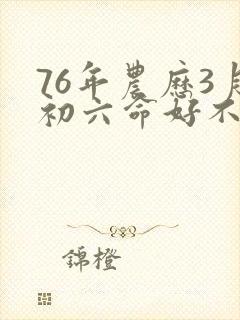 76年農歷3月
初六命好不
錦橙